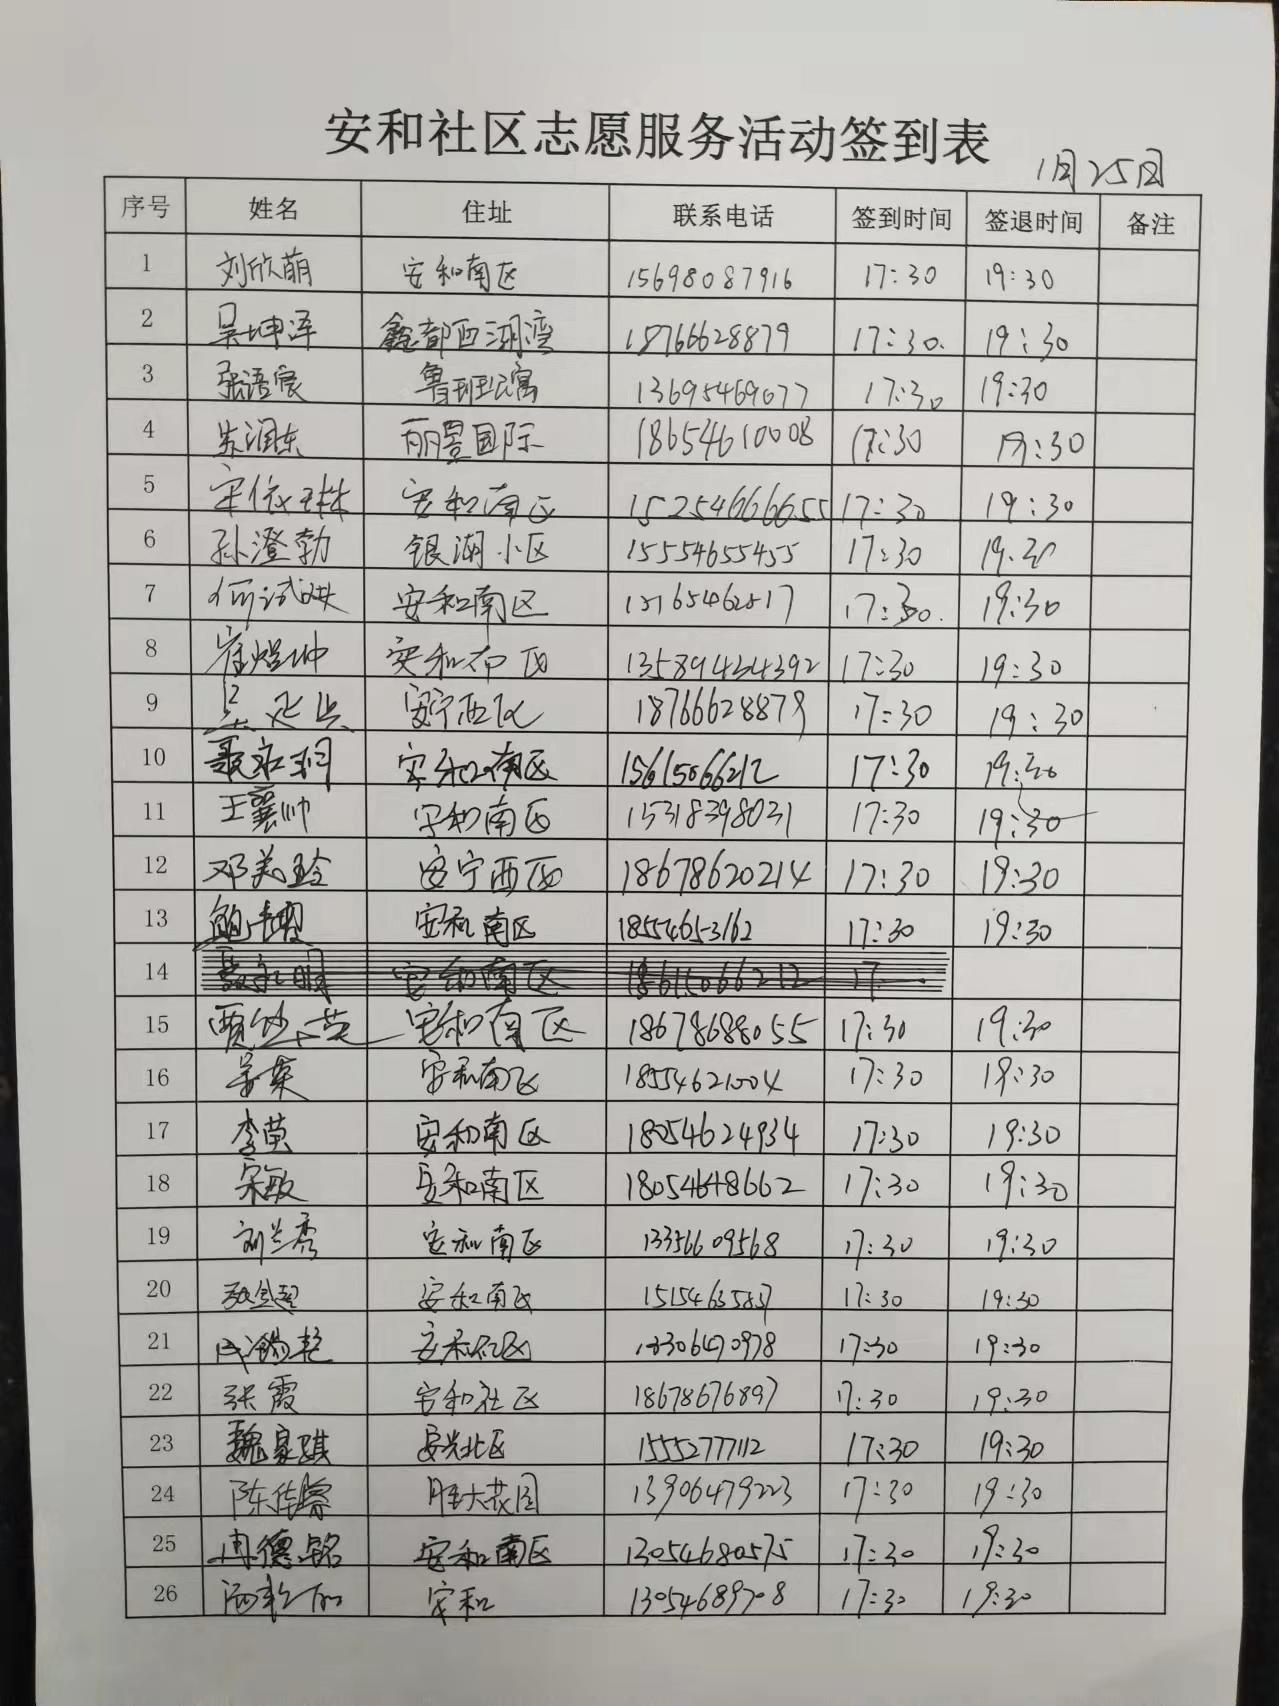 安和社区志愿服务活动签到表
1月25日
序号 姓名 住址 联系电话 签到时间 签退时间 备注
1 刘欣萌 安和南区 15698087916 17:30 19:30
2 吴坤泽 鑫都西湖湾 18766628879 17:30. 19:30
3 张语宸 鲁班公寓 13695469077 17:30 19:30
4 朱润东 丽景国际 18654610008 17:30 19:30
5 宋依琳 安和南区 152546666655 17:30 19:30
6 孙澄勃 银湖小区 15554655455 17:30 19:30
7 安和南区 17:30. 19:30
8 崔煜坤 17:30 19:30
9 安宁西区 18766628879 17:30 19:30
10 安和南区 15615066212 17:30 19:30
11 王襄帅 安和南区 15318398031 17:30 19:30
12 邓美玲 安宁西区 18678620214 17:30 19:30
13 安和南区 18554653162 17:30 19:30
14 安和南区 17
15 安和南区 18678688055 17:30 19:30
16 安和南区 17:30 19:30
17 李英 安和南区 18054624934 17:30 19:30
18 宋敏 安和南区 18054648662 17:30 19:30
19 刘兰秀 安和南区 13356609568 17:30 19:30
20 安和南区 17:30 19:30
21 17:30 19:30
22 张霞 安和社区 18678676897 17:30 19:30
23 魏家琪 安兴北区 15552777112 17:30 19:30
24 陈传睿 胜大花园 13906479223 17:30 19:30
25 冉德铭 安和南区 13054680575 17:30 19:30
26 安和 13054689708 17:30 19:30